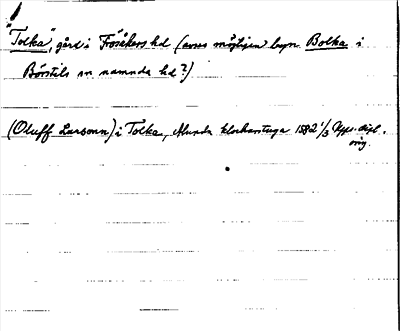 "Tolka", gård i Frösåkers hd (avses möjligen byn Bolka i
Börstils sn namnda hd?)
(Oluff Larsonn) i Tolka, Alunda klockastuga 1582 1/3 Upps. dipl.
orig.